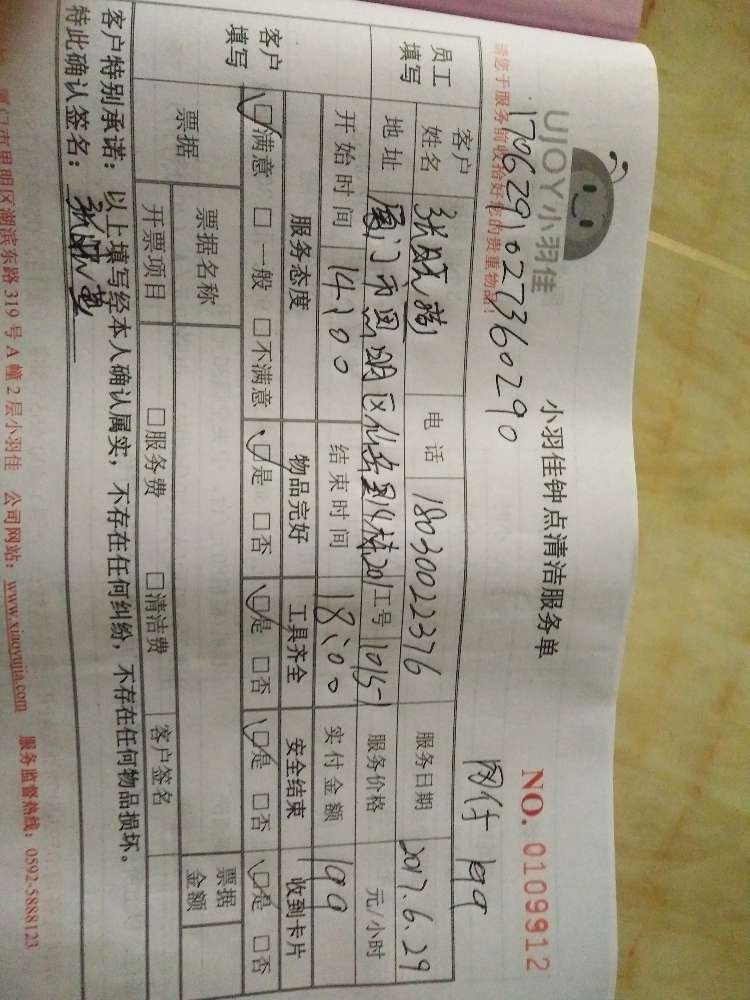 UJOY小羽佳
小羽佳钟点清洁服务单
NO. 0109912
请您于服务前收拾好您的贵重物品！
1706291027360290
网付 199
员工填写
客户姓名 张 电话 18030022376 服务日期 2017.6.29
地址 厦门市思明区仙岳里 201 工号 1015-1 服务价格 元/小时
开始时间 14:00 结束时间 18:00 实付金额 199
客户填写
服务态度 物品完好 工具齐全 安全结束 收到卡片
☑满意 □一般 □不满意 ☑是 □否 ☑是 □否 ☑是 □否 ☑是 □否
票据 票据名称 票据金额
开票项目 □服务费 □清洁费 客户签名
客户特别承诺：以上填写经本人确认属实，不存在任何纠纷，不存在任何物品损坏。
特此确认签名：
厦门市思明区湖滨东路319号A幢2层小羽佳 公司网站：www.xiaoyujia.com 服务监督热线：0592-5888123